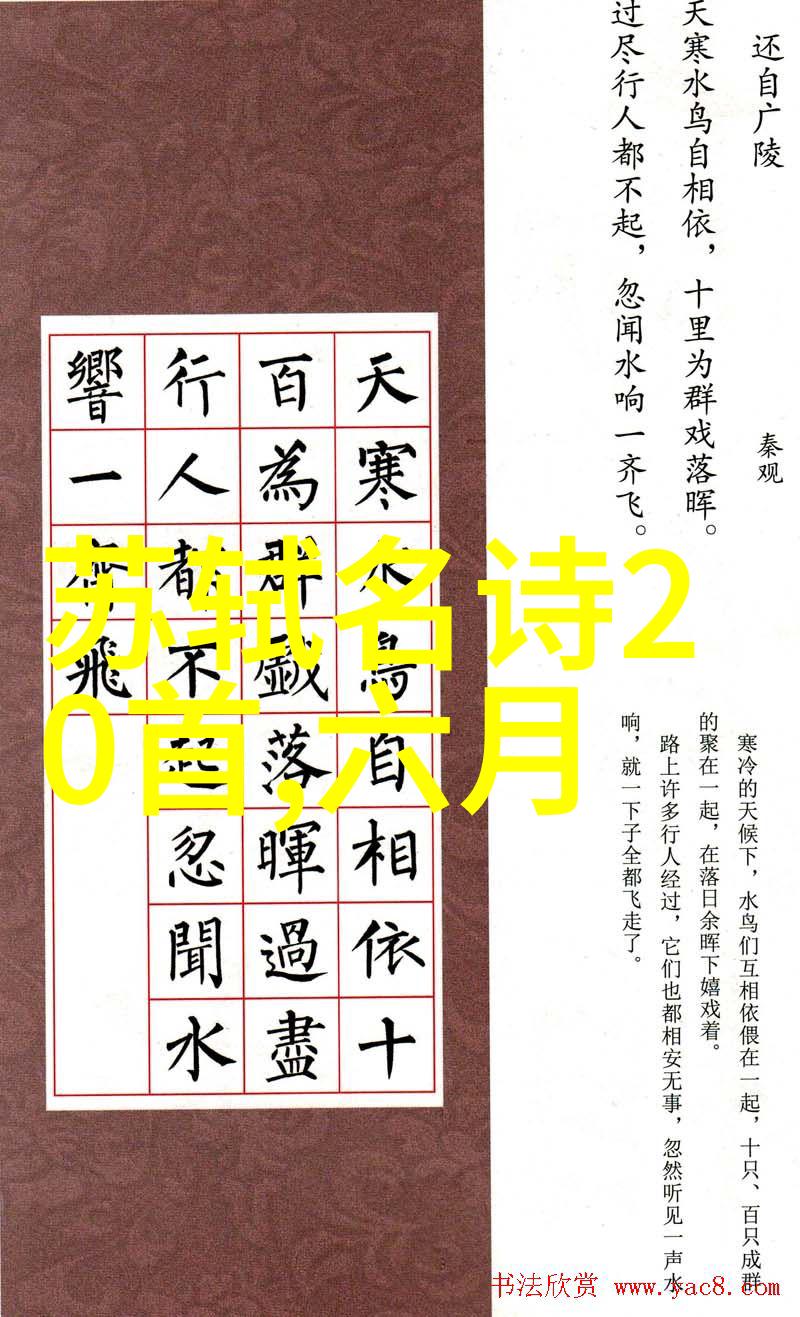 还自广陵
秦观
天寒水鸟自相依，十里为群戏落晖。
过尽行人都不起，忽闻水响一齐飞。
寒冷的天候下，水鸟们互相依偎在一起，十只、百只成群
的聚在一起，在落日余晖下嬉戏着。
路上许多行人经过，它们也都相安无事，忽然听见一声水
响，就一下子全都飞走了。
天寒水鳥自相依十
百為群戲落暉過盡
行人都不起忽聞水
響一齊飛
苏轼名诗2
0首,六月
书法欣赏 www.yac8.com